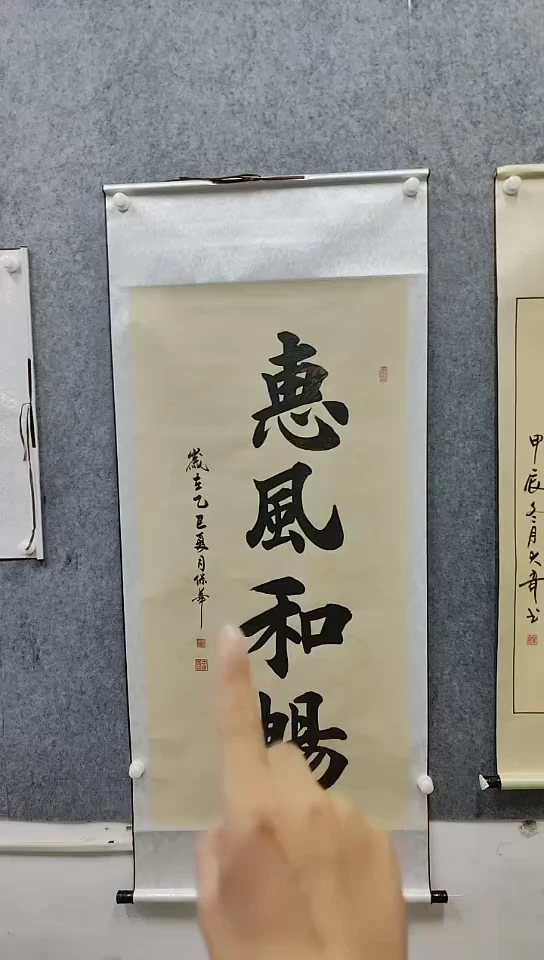 惠風和暢
歲在乙巳夏月保華
甲辰冬月久奇书